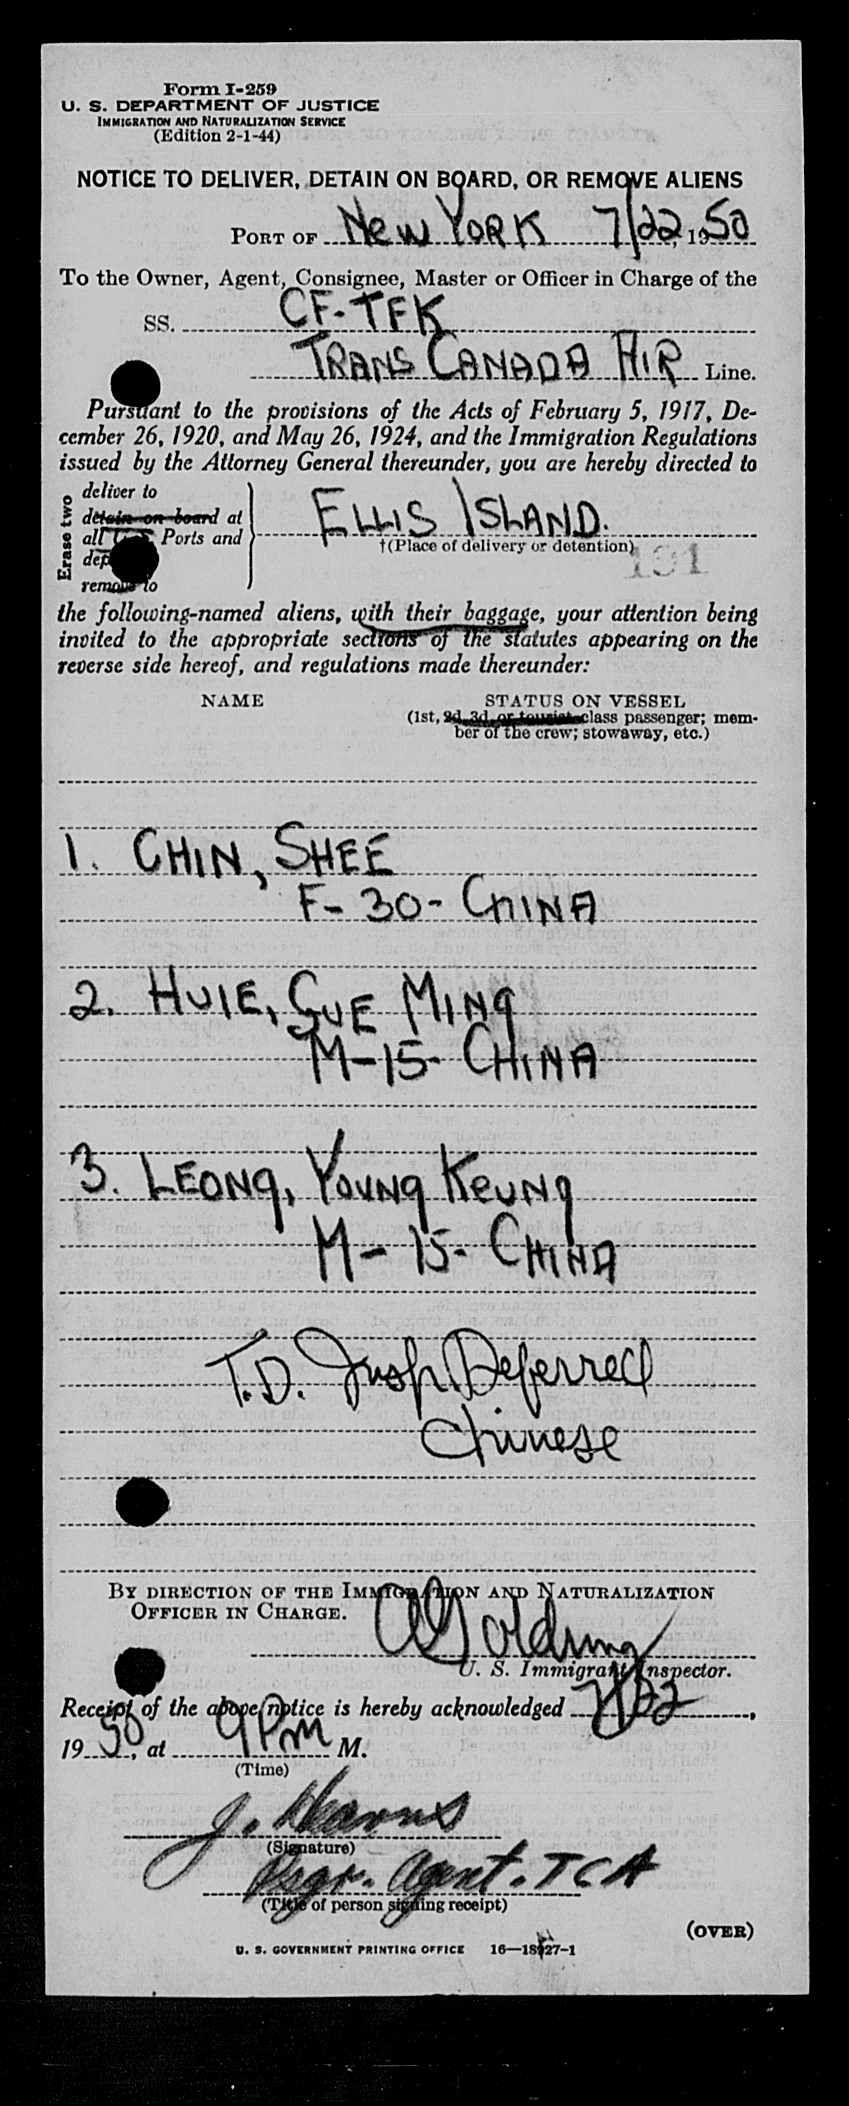 Form I-259
U. S. DEPARTMENT OF JUSTICE
IMMIGRATION AND NATURALIZATION SERVICE
(Edition 2-1-44)
NOTICE TO DELIVER, DETAIN ON BOARD, OR REMOVE ALIENS
PORT OF New York 7/22, 1950
To the Owner, Agent, Consignee, Master or Officer in Charge of the
SS. CF-TFK
TRANS CANADA AIR Line.
Pursuant to the provisions of the Acts of February 5, 1917, De-
cember 26, 1920, and May 26, 1924, and the Immigration Regulations
issued by the Attorney General thereunder, you are hereby directed to
Erase two
deliver to
detain on board at
all U.S. Ports and
remove to
ELLIS ISLAND.
†(Place of delivery or detention)
191
the following-named aliens, with their baggage, your attention being
invited to the appropriate sections of the statutes appearing on the
reverse side hereof, and regulations made thereunder:
NAME STATUS ON VESSEL
(1st, 2d, 3d, or tourist class passenger; mem-
ber of the crew; stowaway, etc.)
1. CHIN, SHEE
F- 30- CHINA
2. HUIE, GUE MING
M-15- CHINA
3. LEONG, YOUNG KEUNG
M- 15- CHINA
T.D. Insp Deferred
Chinese
BY DIRECTION OF THE IMMIGRATION AND NATURALIZATION
OFFICER IN CHARGE.
Golding
U. S. Immigrant Inspector.
Receipt of the above notice is hereby acknowledged 7/22,
1950, at 9 Pm M.
(Time)
J. Hearns
(Signature)
Psgr. Agent. TCA
(Title of person signing receipt)
(OVER)
U. S. GOVERNMENT PRINTING OFFICE